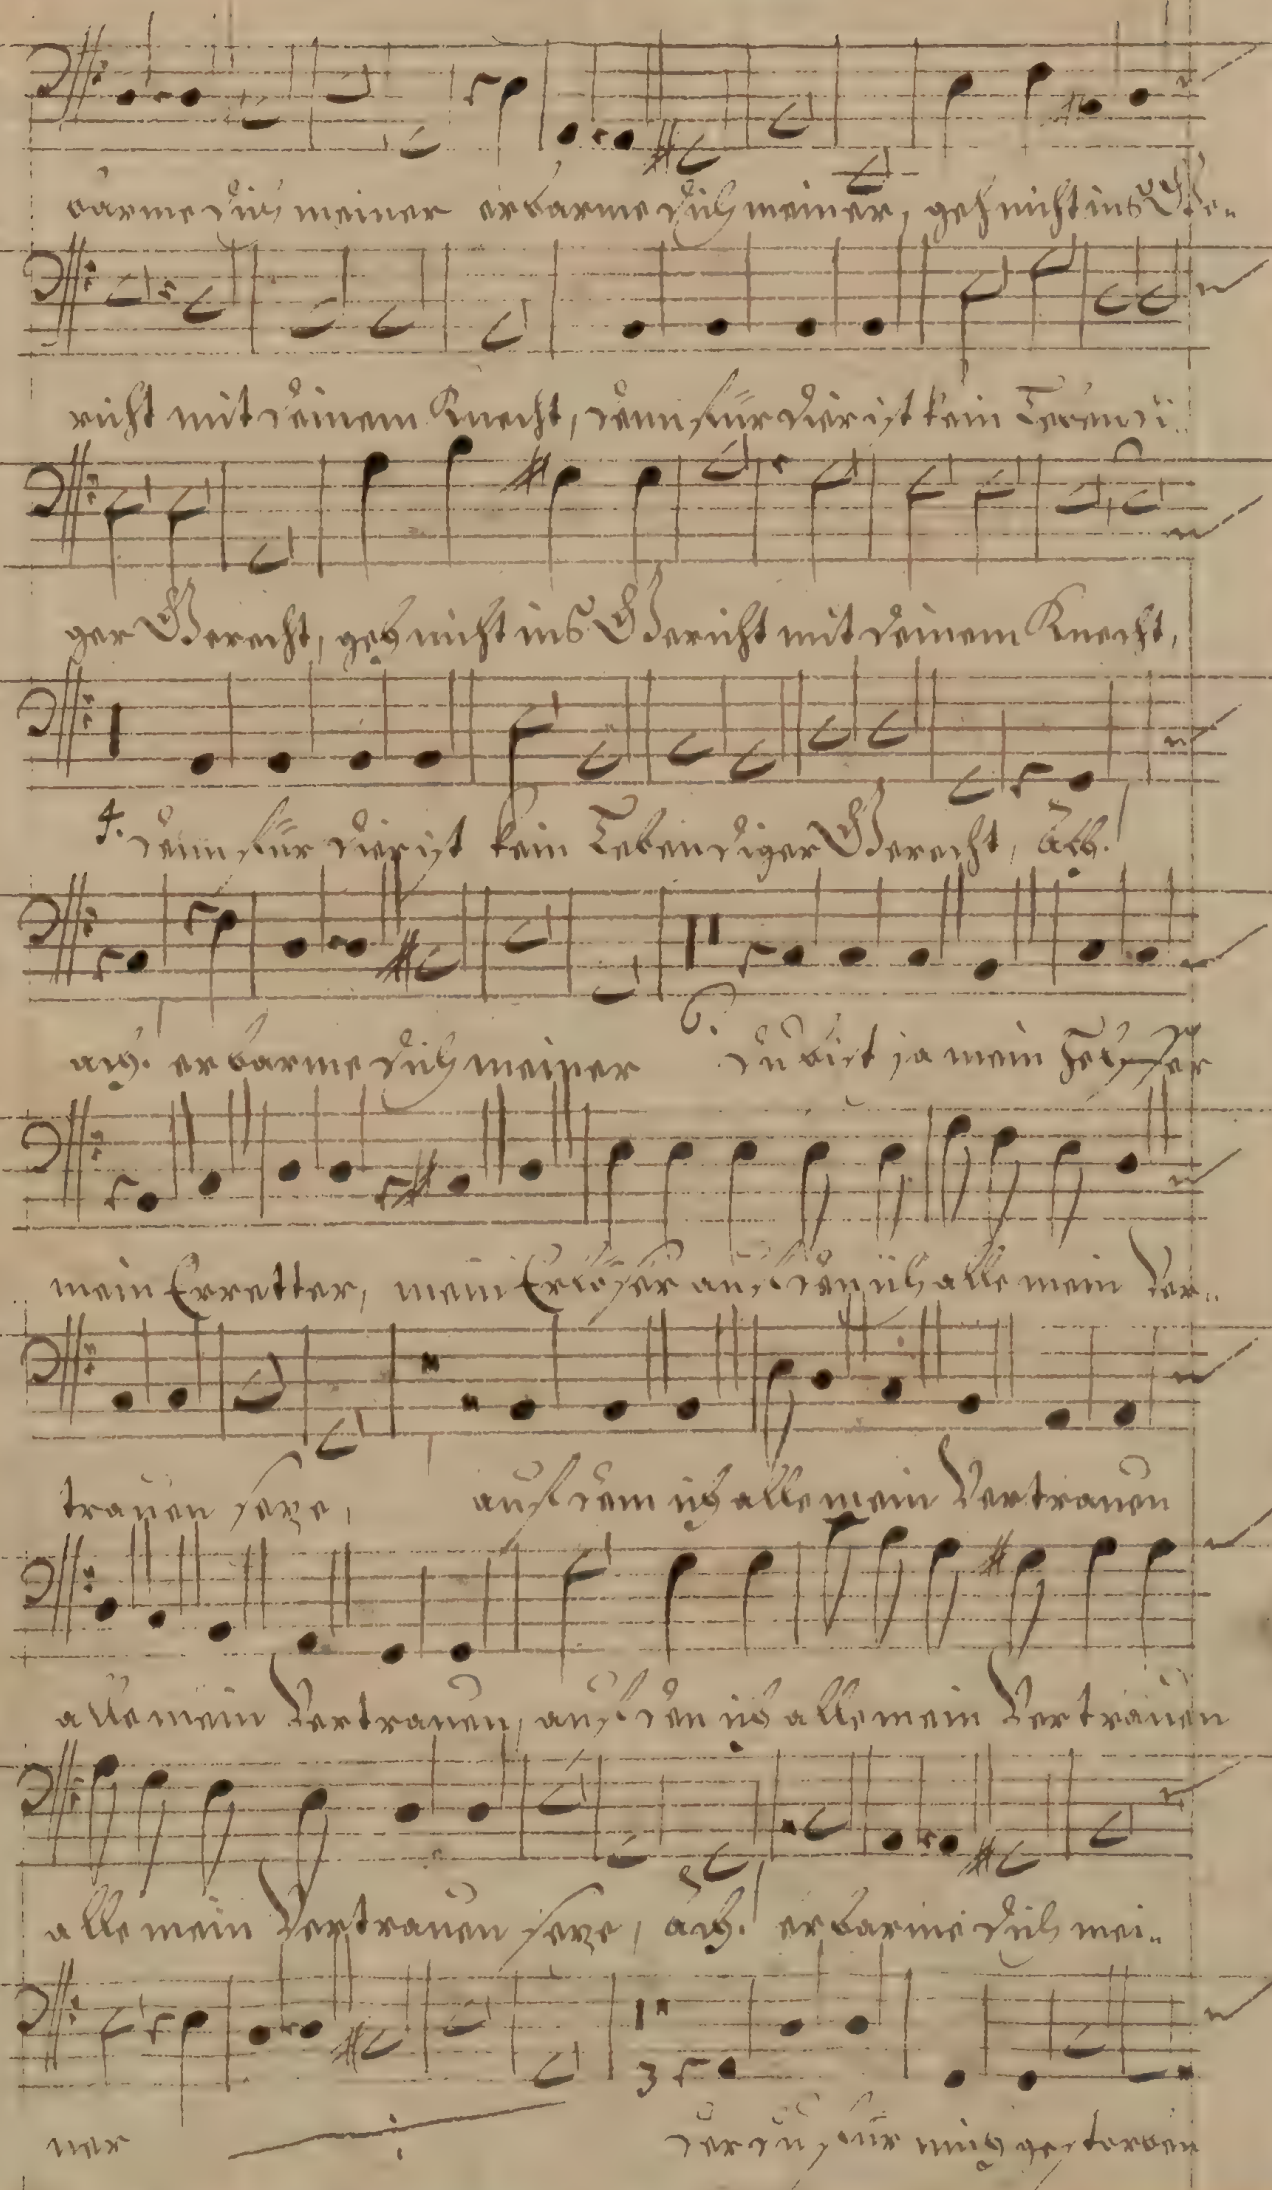 barme dich meiner erbarme dich meiner, geh nicht ins Ge-
richt mit deinem Knecht, denn für dier ist kein Lebendi-
ger Gerecht, geh nicht ins Gericht mit deinem Knecht,
4. denn für dier ist kein Lebendiger Gerecht, Ach!
ach. erbarme dich meiner 6. du bist ja mein Helffer
mein Erretter, mein Erlöser auf den ich alle mein Ver-
trauen seze, auf dem ich alle mein Vertrauen
alle mein Vertrauen, auf den ich alle mein Vertrauen
alle mein Vertrauen seze, ach! erbarme dich mei-
ner 3 der du für mich gestorben